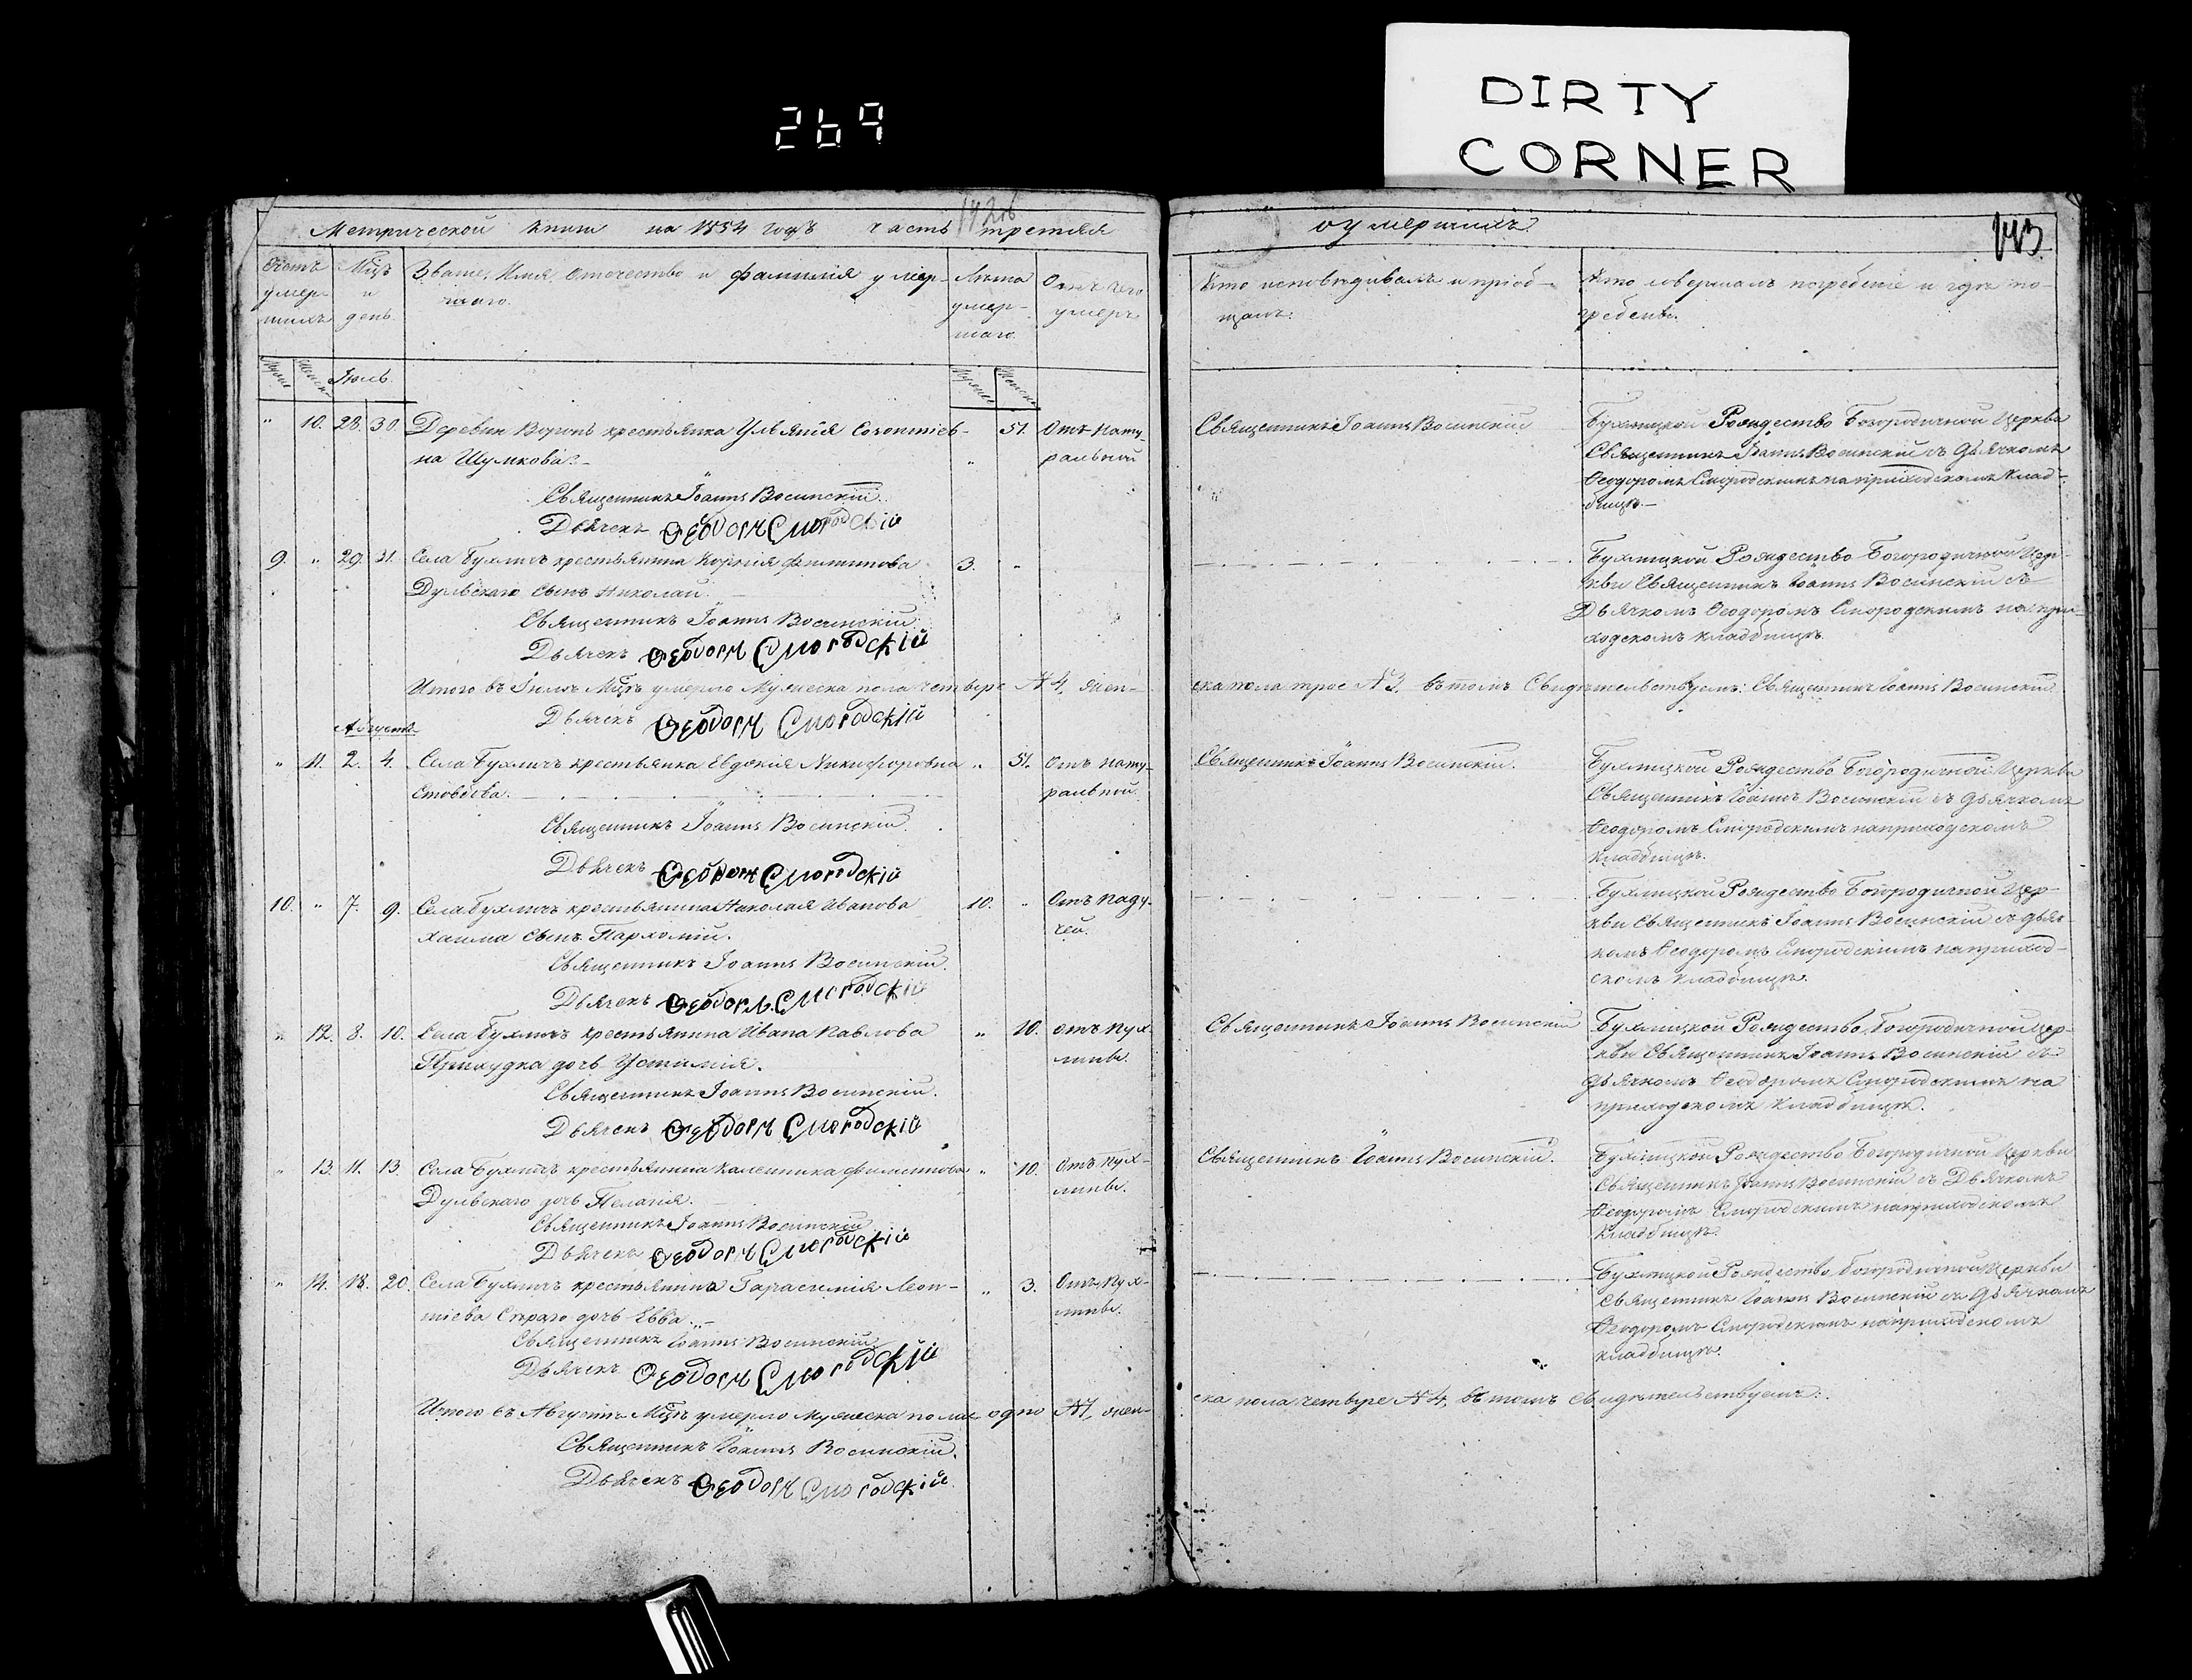 269
DIRTY
CORNER
Метрической книги на 1854 годъ часть третяя
о умершихъ
143
Счетъ умер-шихъ
Мцъ и день
Званіе, Имя, Отчество и фамилія умер-
шаго.
Лѣта умер-шаго
Отъ чего умеръ
Кто исповѣдывалъ и пріоб-
щалъ.
Кто совершалъ погребеніе и гдѣ по-
гребены.
Іюль
" 10. 28. 30. Деревни крестьянка Ульянія - 51. Отъ нату-
на Шумкова. " ральной
Священникъ Іоаннъ Восинскій
Дьячекъ Ѳеодоръ Смородскій
Священникъ Іоаннъ Восинскій
Бухлицкой Рождество Богородичной Церкви
Священникъ Іоаннъ Восинскій съ Дьячкомъ
Ѳеодоромъ Смородскимъ на приходскомъ Клад-
бищѣ.
9. " 29. 31. Села Бухличъ крестьянина Корнія Филиппова 3. "
Дульскаго сынъ Николай.
Священникъ Іоаннъ Восинскій
Дьячекъ Ѳеодоръ Смородскій
Бухлицкой Рождество Богородичной Цер-
кви Священникъ Іоаннъ Восинскій съ
Дьячкомъ Ѳеодоромъ Смородскимъ на при-
ходскомъ кладбищѣ.
Итого въ Іюлѣ Мцѣ умерло Мужеска пола четверо № 4, жен-
ска пола трое № 3. въ томъ Свидѣтельствуемъ: Священникъ Іоаннъ Восинскій
Дьячекъ Ѳеодоръ Смородскій
Августъ
" 11. 2. 4. Села Бухличъ крестьянка Евдокія Никифоровна " 51. Отъ нату-
ральной
Священникъ Іоаннъ Восинскій.
Дьячекъ Ѳеодоръ Смородскій
Священникъ Іоаннъ Восинскій.
Бухлицкой Рождество Богородичной Церкви
Священникъ Іоаннъ Восинскій съ Дьячкомъ
Ѳеодоромъ Смородскимъ на приходскомъ
кладбищѣ.
10. " 7. 9. Села Бухличъ крестьянина Николая Иванова 10. " Отъ паду-
Хаима сынъ Пархомій. чей.
Священникъ Іоаннъ Восинскій.
Дьячекъ Ѳеодоръ Смородскій
Бухлицкой Рождество Богородичной Цер-
кви Священникъ Іоаннъ Восинскій съ дьяч-
комъ Ѳеодоромъ Смородскимъ на приход-
скомъ кладбищѣ.
" 12. 8. 10. Села Бухличъ крестьянина Ивана Павлова " 10. отъ пух-
дочь Устимія. лины.
Священникъ Іоаннъ Восинскій.
Дьячекъ Ѳеодоръ Смородскій
Священникъ Іоаннъ Восинскій
Бухлицкой Рождество Богородичной Цер-
кви Священникъ Іоаннъ Восинскій съ
дьячкомъ Ѳеодоромъ Смородскимъ на
приходскомъ кладбищѣ.
" 13. 11. 13. Села Бухличъ крестьянина Каленика Филиппова " 10. Отъ пух-
Дульскаго дочь Пелагія. лины.
Священникъ Іоаннъ Восинскій
Дьячекъ Ѳеодоръ Смородскій
Священникъ Іоаннъ Восинскій.
Бухлицкой Рождество Богородичной Церкви
Священникъ Іоаннъ Восинскій съ Дьячкомъ
Ѳеодоромъ Смородскимъ на приходскомъ
кладбищѣ.
" 14. 18. 20. Села Бухличъ крестьянина Гарасимія Леон- " 3. Отъ пух-
тіева Сѣраго дочь Евва. лины.
Священникъ Іоаннъ Восинскій
Дьячекъ Ѳеодоръ Смородскій
Бухлицкой Рождество Богородичной Церкви
Священникъ Іоаннъ Восинскій съ Дьячкомъ
Ѳеодоромъ Смородскимъ на приходскомъ
кладбищѣ.
Итого въ Августѣ Мцѣ умерло мужеска пола одно № 1, жен-
ска пола четверо № 4, въ томъ свидѣтельствуемъ:
Священникъ Іоаннъ Восинскій.
Дьячекъ Ѳеодоръ Смородскій.